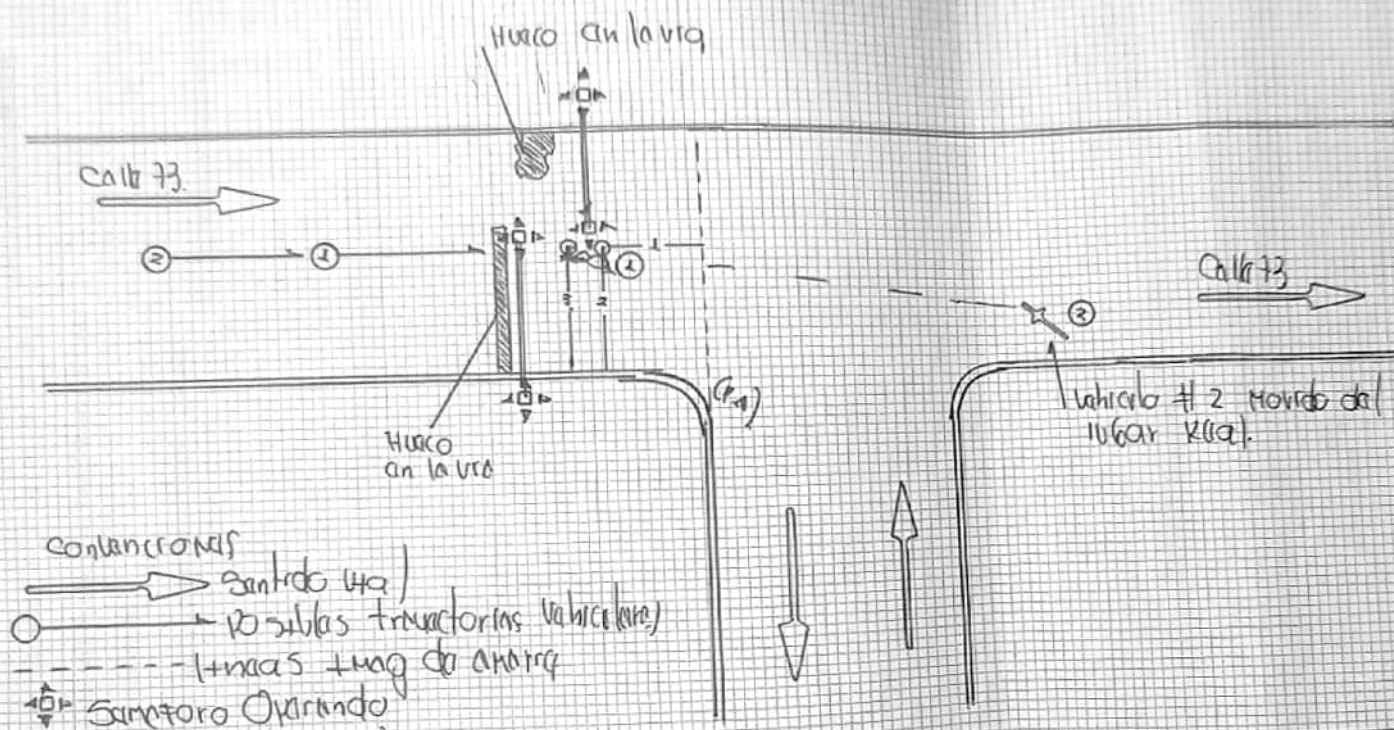 Hueco en la via
Calle 73.
2
1
1
1
3
2
Calle 73
2
(P.A)
Vehiculo # 2 Movido del
lugar
Hueco
en la via
Convenciones
Sentido vial
Posibles trayectorias vehiculares
lineas de amarre
Semaforo Operando